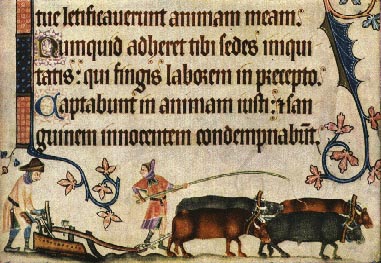 tue letificauerunt animam meam.
Nunquid adheret tibi sedes iniqui
tatis: qui fingis laborem in precepto.
Captabunt in animam iusti: et san
guinem innocentem condempnabunt